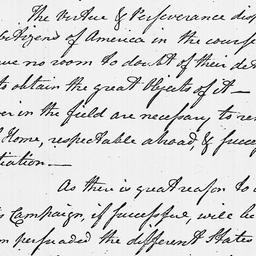 The Virtue & Perseverance disp
Citizens of America in the course
ve no room to doubt of their det
to obtain the great Objects of it—
er in the field are necessary to ren
Home, respectable abroad, & succes
tiation—
As there is great reason to
Campaign, if successful, will be
persuaded the different States